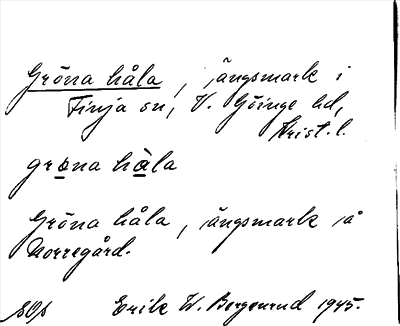 Gröna håla, ängsmark i
Finja sn, V. Göinge hd,
Krist. l.
gro̲na hà̲la
Gröna håla, ängsmark på
Norregård.
Erik W. Bergenrud 1945.